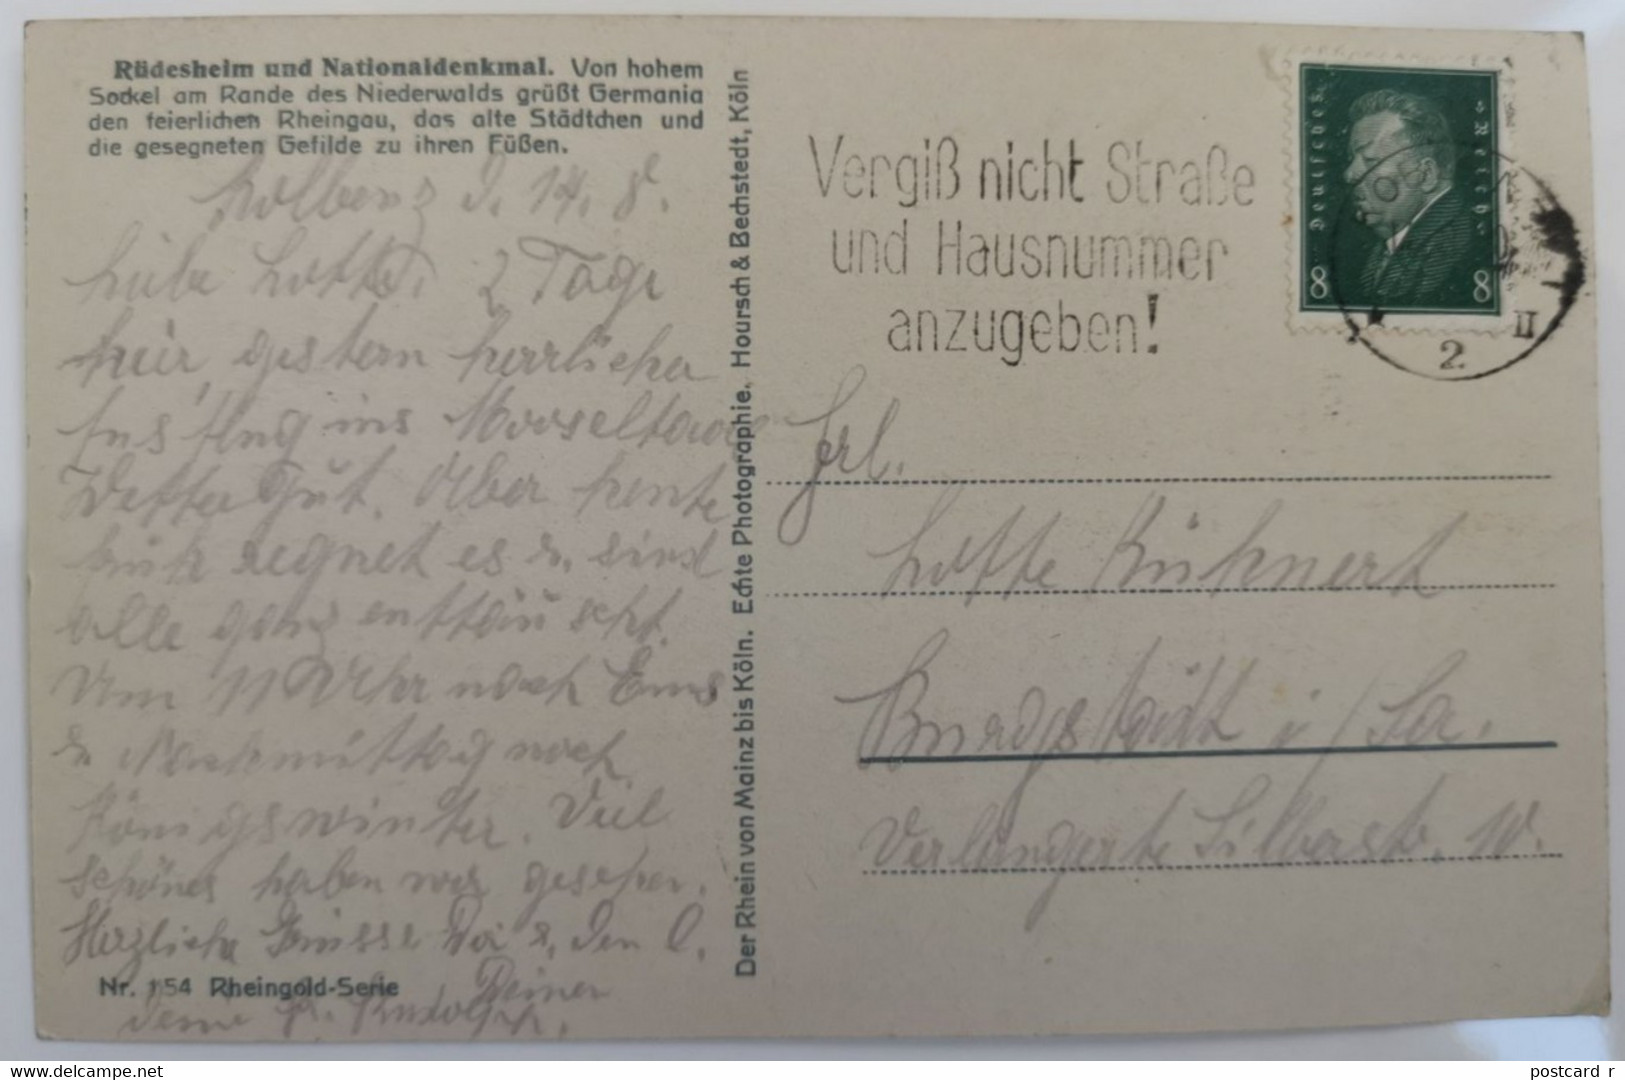 Rüdesheim und Nationaldenkmal. Von hohem
Sockel am Rande des Niederwalds grüßt Germania
den feierlichen Rheingau, das alte Städtchen und
die gesegneten Gefilde zu ihren Füßen.
d. 14. 8.
Liebe Lotte, 2 Tage
hier, gestern herrlicher
ins
Wetter Gut. Aber heute
früh regnet es u. sind
alle ganz enttäuscht.
Um 11 Uhr nach Ems
u. Nachmittag noch
Königswinter. Viel
schönes haben wir gesehen.
Herzliche Grüsse Dir u. den
Deinen
Nr. 1154 Rheingold-Serie
Deine
Der Rhein von Mainz bis Köln. Echte Photographie. Hoursch & Bechstedt, Köln
Vergiß nicht Straße
und Hausnummer
anzugeben!
Deutsches Reich
8 8
2. II
Frl.
Lotte Kühnert
Burgstädt i/Sa.
Verlängerte Silberstr. 10.
delcampe.net
postcard_r